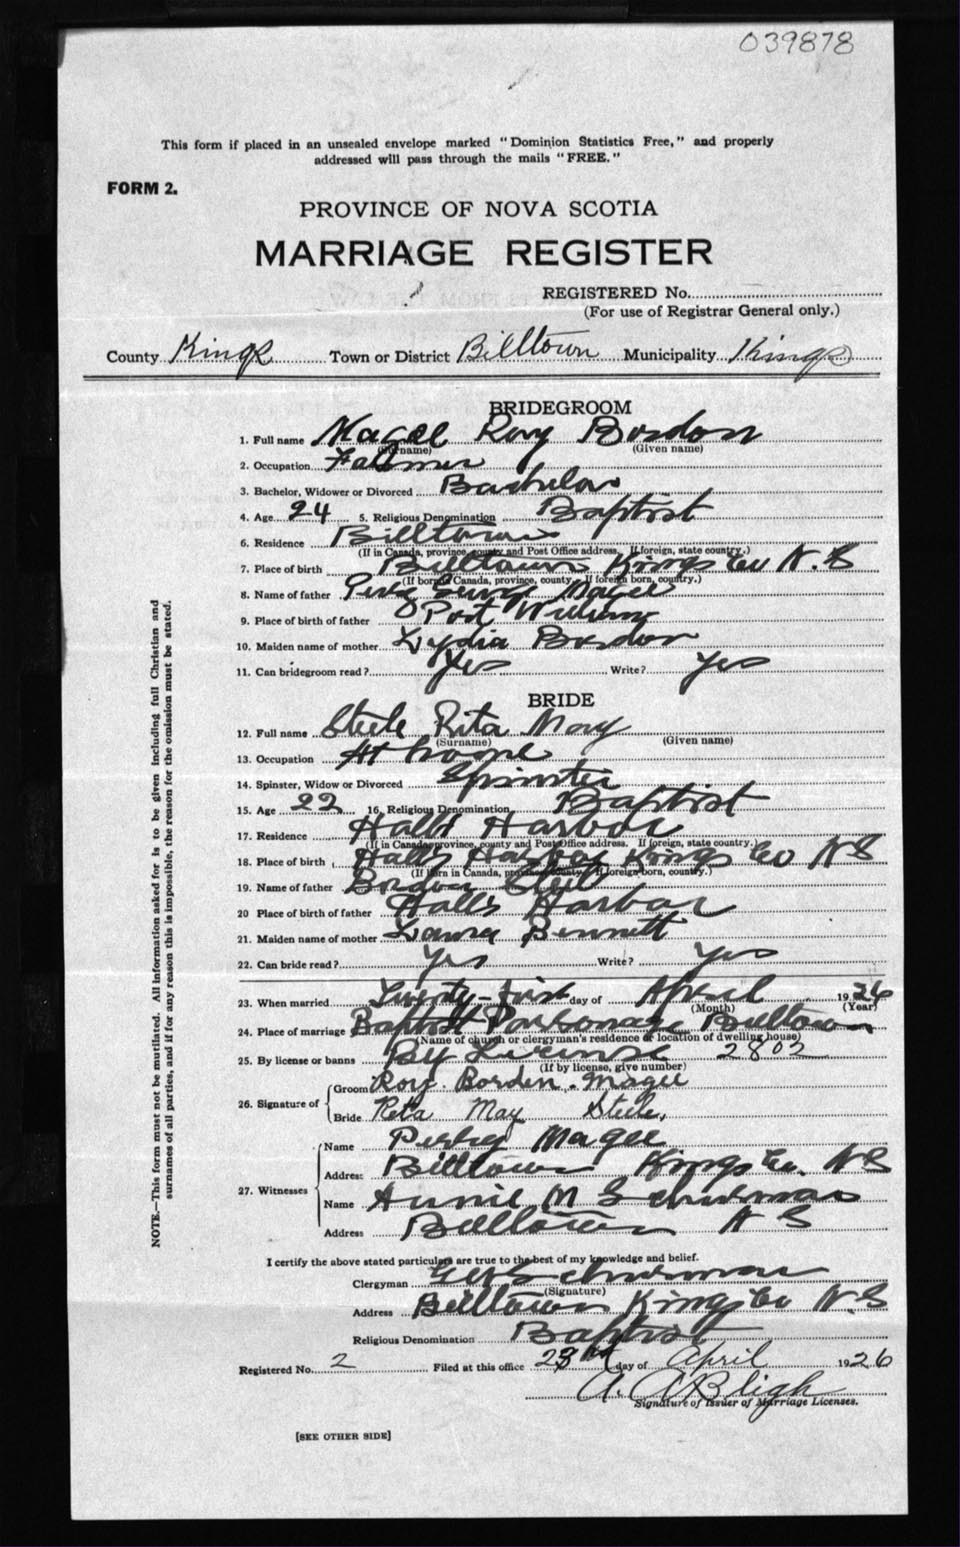 039878
This form if placed in an unsealed envelope marked "Dominion Statistics Free," and properly
addressed will pass through the mails "FREE."
FORM 2.
PROVINCE OF NOVA SCOTIA
MARRIAGE REGISTER
REGISTERED No.
(For use of Registrar General only.)
County Kings Town or District Billtown Municipality Kings
BRIDEGROOM
1. Full name Magee Roy Borden
(Surname) (Given name)
2. Occupation Farmer
3. Bachelor, Widower or Divorced Bachelor
4. Age 24 5. Religious Denomination Baptist
6. Residence Billtown
(If in Canada, province, county and Post Office address. If foreign, state country.)
7. Place of birth Billtown Kings Co N.S
(If born in Canada, province, county. If foreign born, country.)
8. Name of father George Magee
9. Place of birth of father Port Williams
10. Maiden name of mother Lydia Borden
11. Can bridegroom read? Yes Write? Yes
BRIDE
12. Full name Steele Rita May
(Surname) (Given name)
13. Occupation At home
14. Spinster, Widow or Divorced Spinster
15. Age 22 16. Religious Denomination Baptist
17. Residence Halls Harbor
(If in Canada, province, county and Post Office address. If foreign, state country.)
18. Place of birth Halls Harbor Kings Co NS
(If born in Canada, province, county. If foreign born, country.)
19. Name of father Borden Steele
20 Place of birth of father Halls Harbor
21. Maiden name of mother Laura Bennett
22. Can bride read? Yes Write? Yes
23. When married Twenty-first day of April 1926
(Month) (Year)
24. Place of marriage Baptist Parsonage Billtown
(Name of church or clergyman's residence or location of dwelling house)
25. By license or banns By License 2802
(If by license, give number)
26. Signature of Groom Roy Borden Magee
Bride Reta May Steele
27. Witnesses Name Perley Magee
Address Billtown Kings Co. NS
Name Annie M Schurman
Address Billtown N S
I certify the above stated particulars are true to the best of my knowledge and belief.
Clergyman Schurman
(Signature)
Address Billtown Kings Co N.S
Religious Denomination Baptist
Registered No. 2 Filed at this office 23rd day of April 1926
A. A Bligh
Signature of Issuer of Marriage Licenses.
[SEE OTHER SIDE]
NOTE.—This form must not be mutilated. All information asked for is to be given including full Christian and
surnames of all parties, and if for any reason this is impossible, the reason for the omission must be stated.